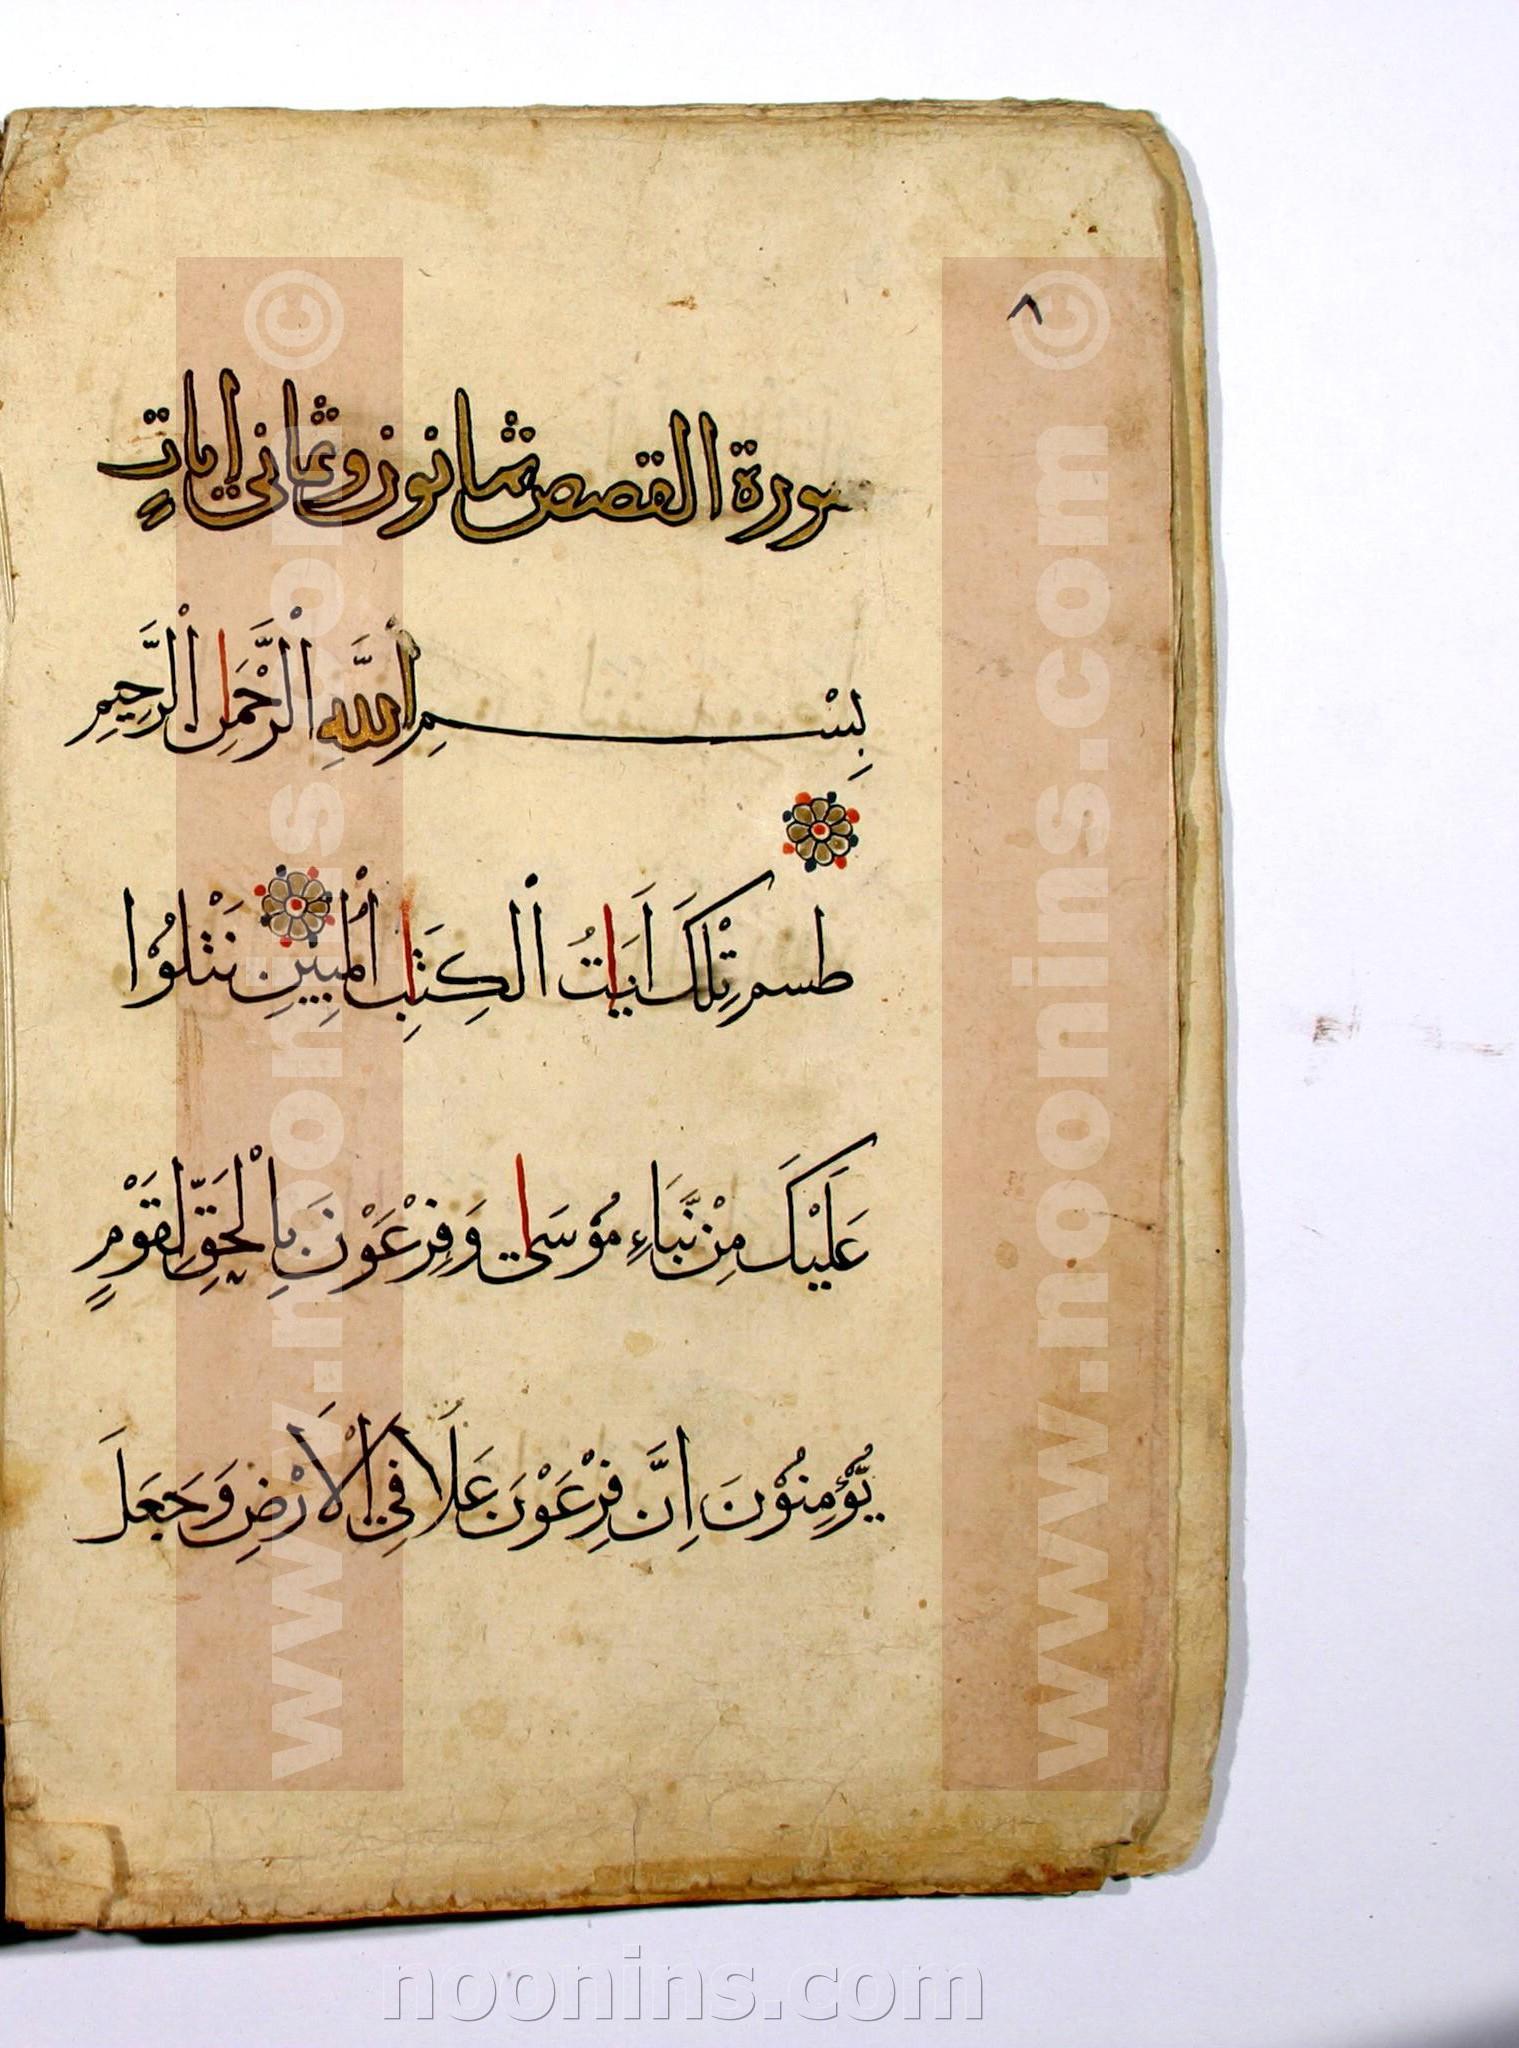 ٨
سورة القصص ثمانون وثماني ايات
بِسْمِ اللَّهِ الرَّحْمَنِ الرَّحِيمِ
طسم تِلْكَ اَيَاتُ الْكِتَابِ الْمُبِيْنِ نَتْلُوْا
عَلَيْكَ مِنْ نَّبَاءِ مُوْسَى وَفِرْعَوْنَ بِالْحَقِّ لِقَوْمٍ
يُّؤْمِنُوْنَ اِنَّ فِرْعَوْنَ عَلَا فِي الْاَرْضِ وَجَعَلَ
www.noonins.com ©
www.noonins.com ©
noonins.com